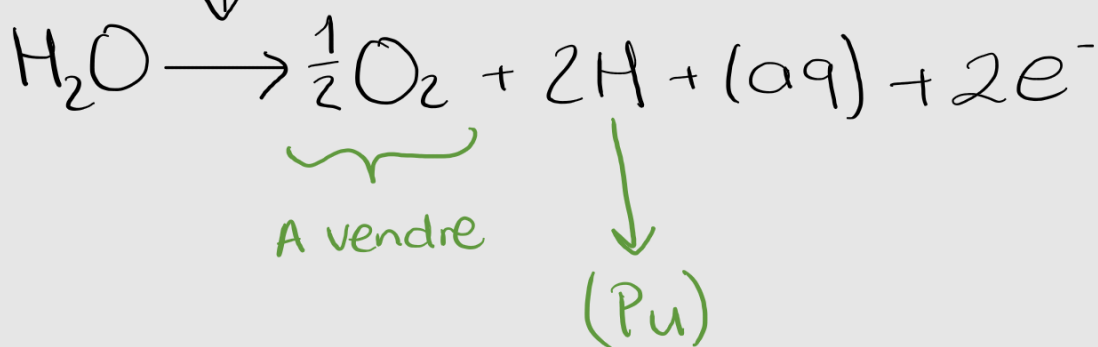 H₂O → ½O₂ + 2H + (aq) + 2e⁻
A vendre
(Pu)